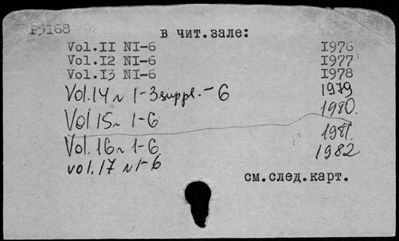 P3168
в чит.зале:
Vol.II NI-6 1976
Vol.I2 NI-6 1977
Vol.I3 NI-6 1978
Vol.14 N 1-3 suppl.-6 1979
Vol 15 N 1-6 1980.
Vol.16 N 1-6 1981.
vol.17 N1-6 1982
см.след.карт.